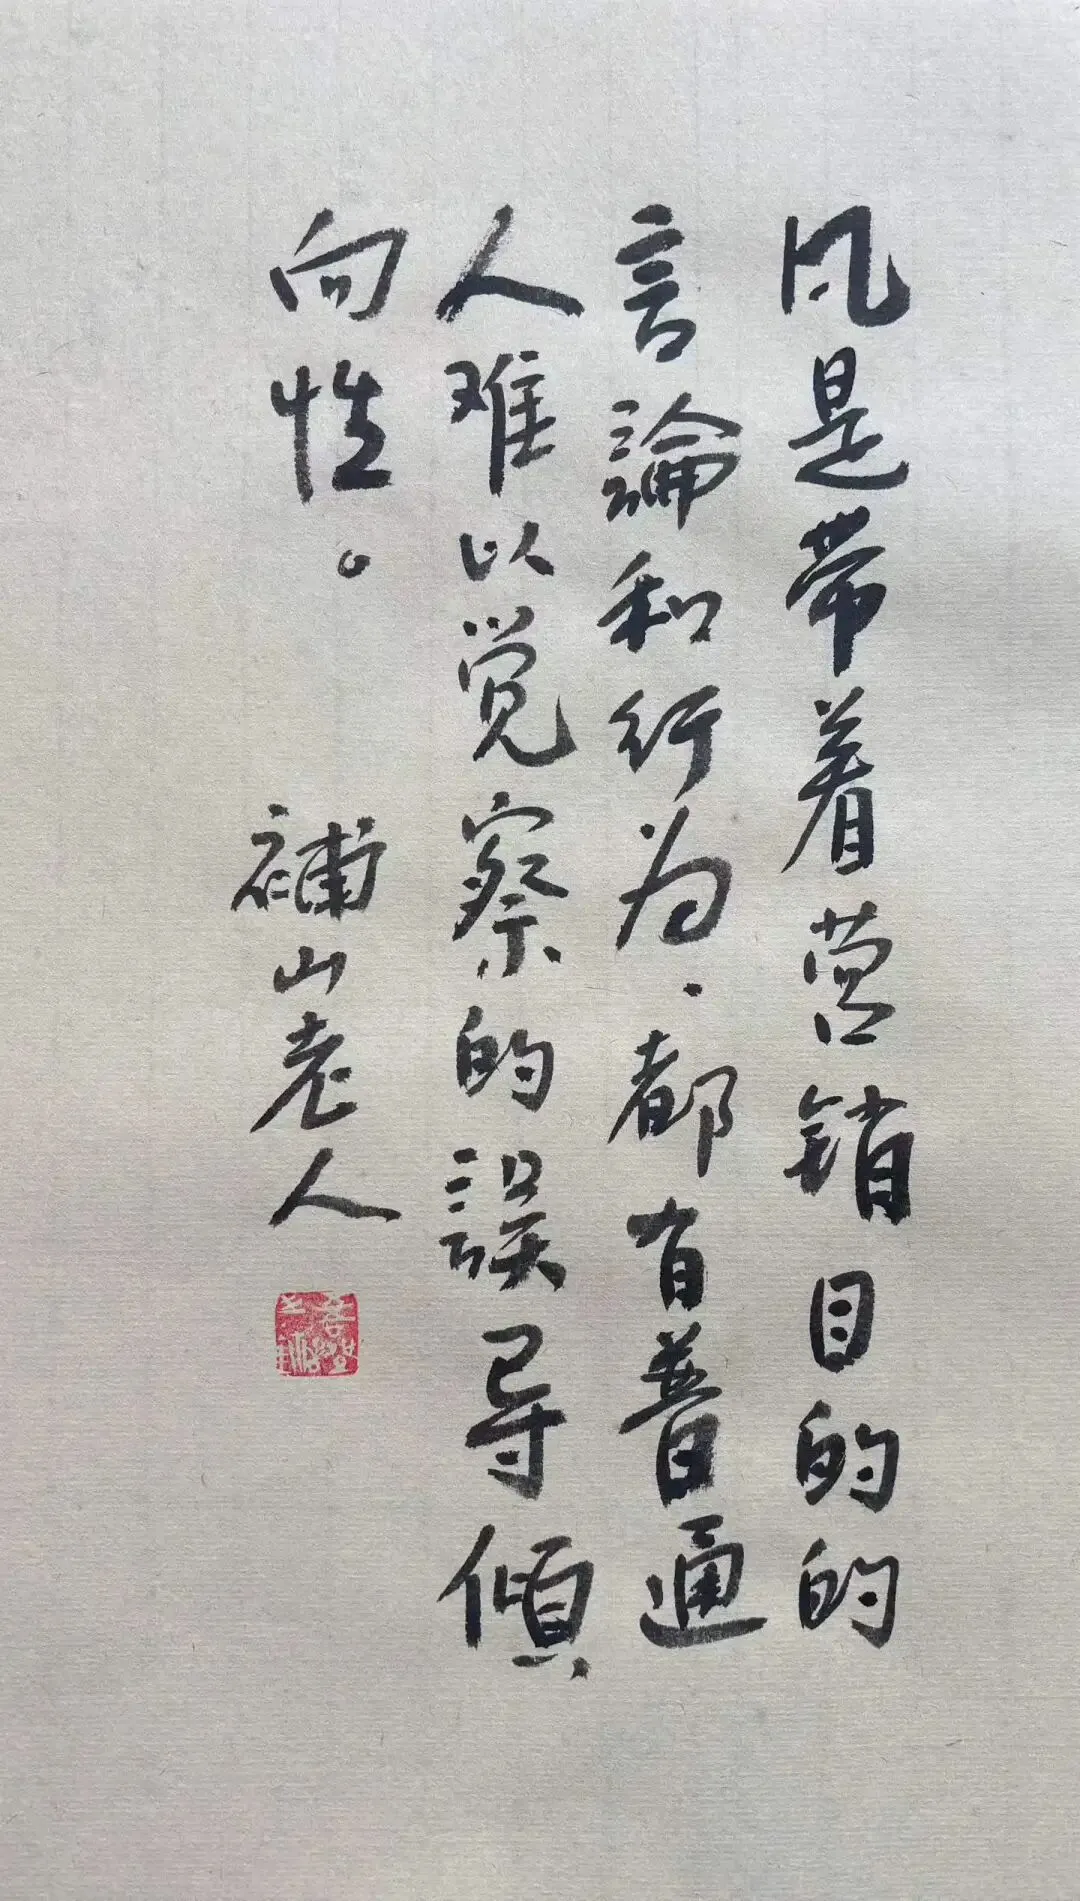 凡是带着营销目的的
言論和行为，都有普通
人难以觉察的誤导傾
向性。
補山老人